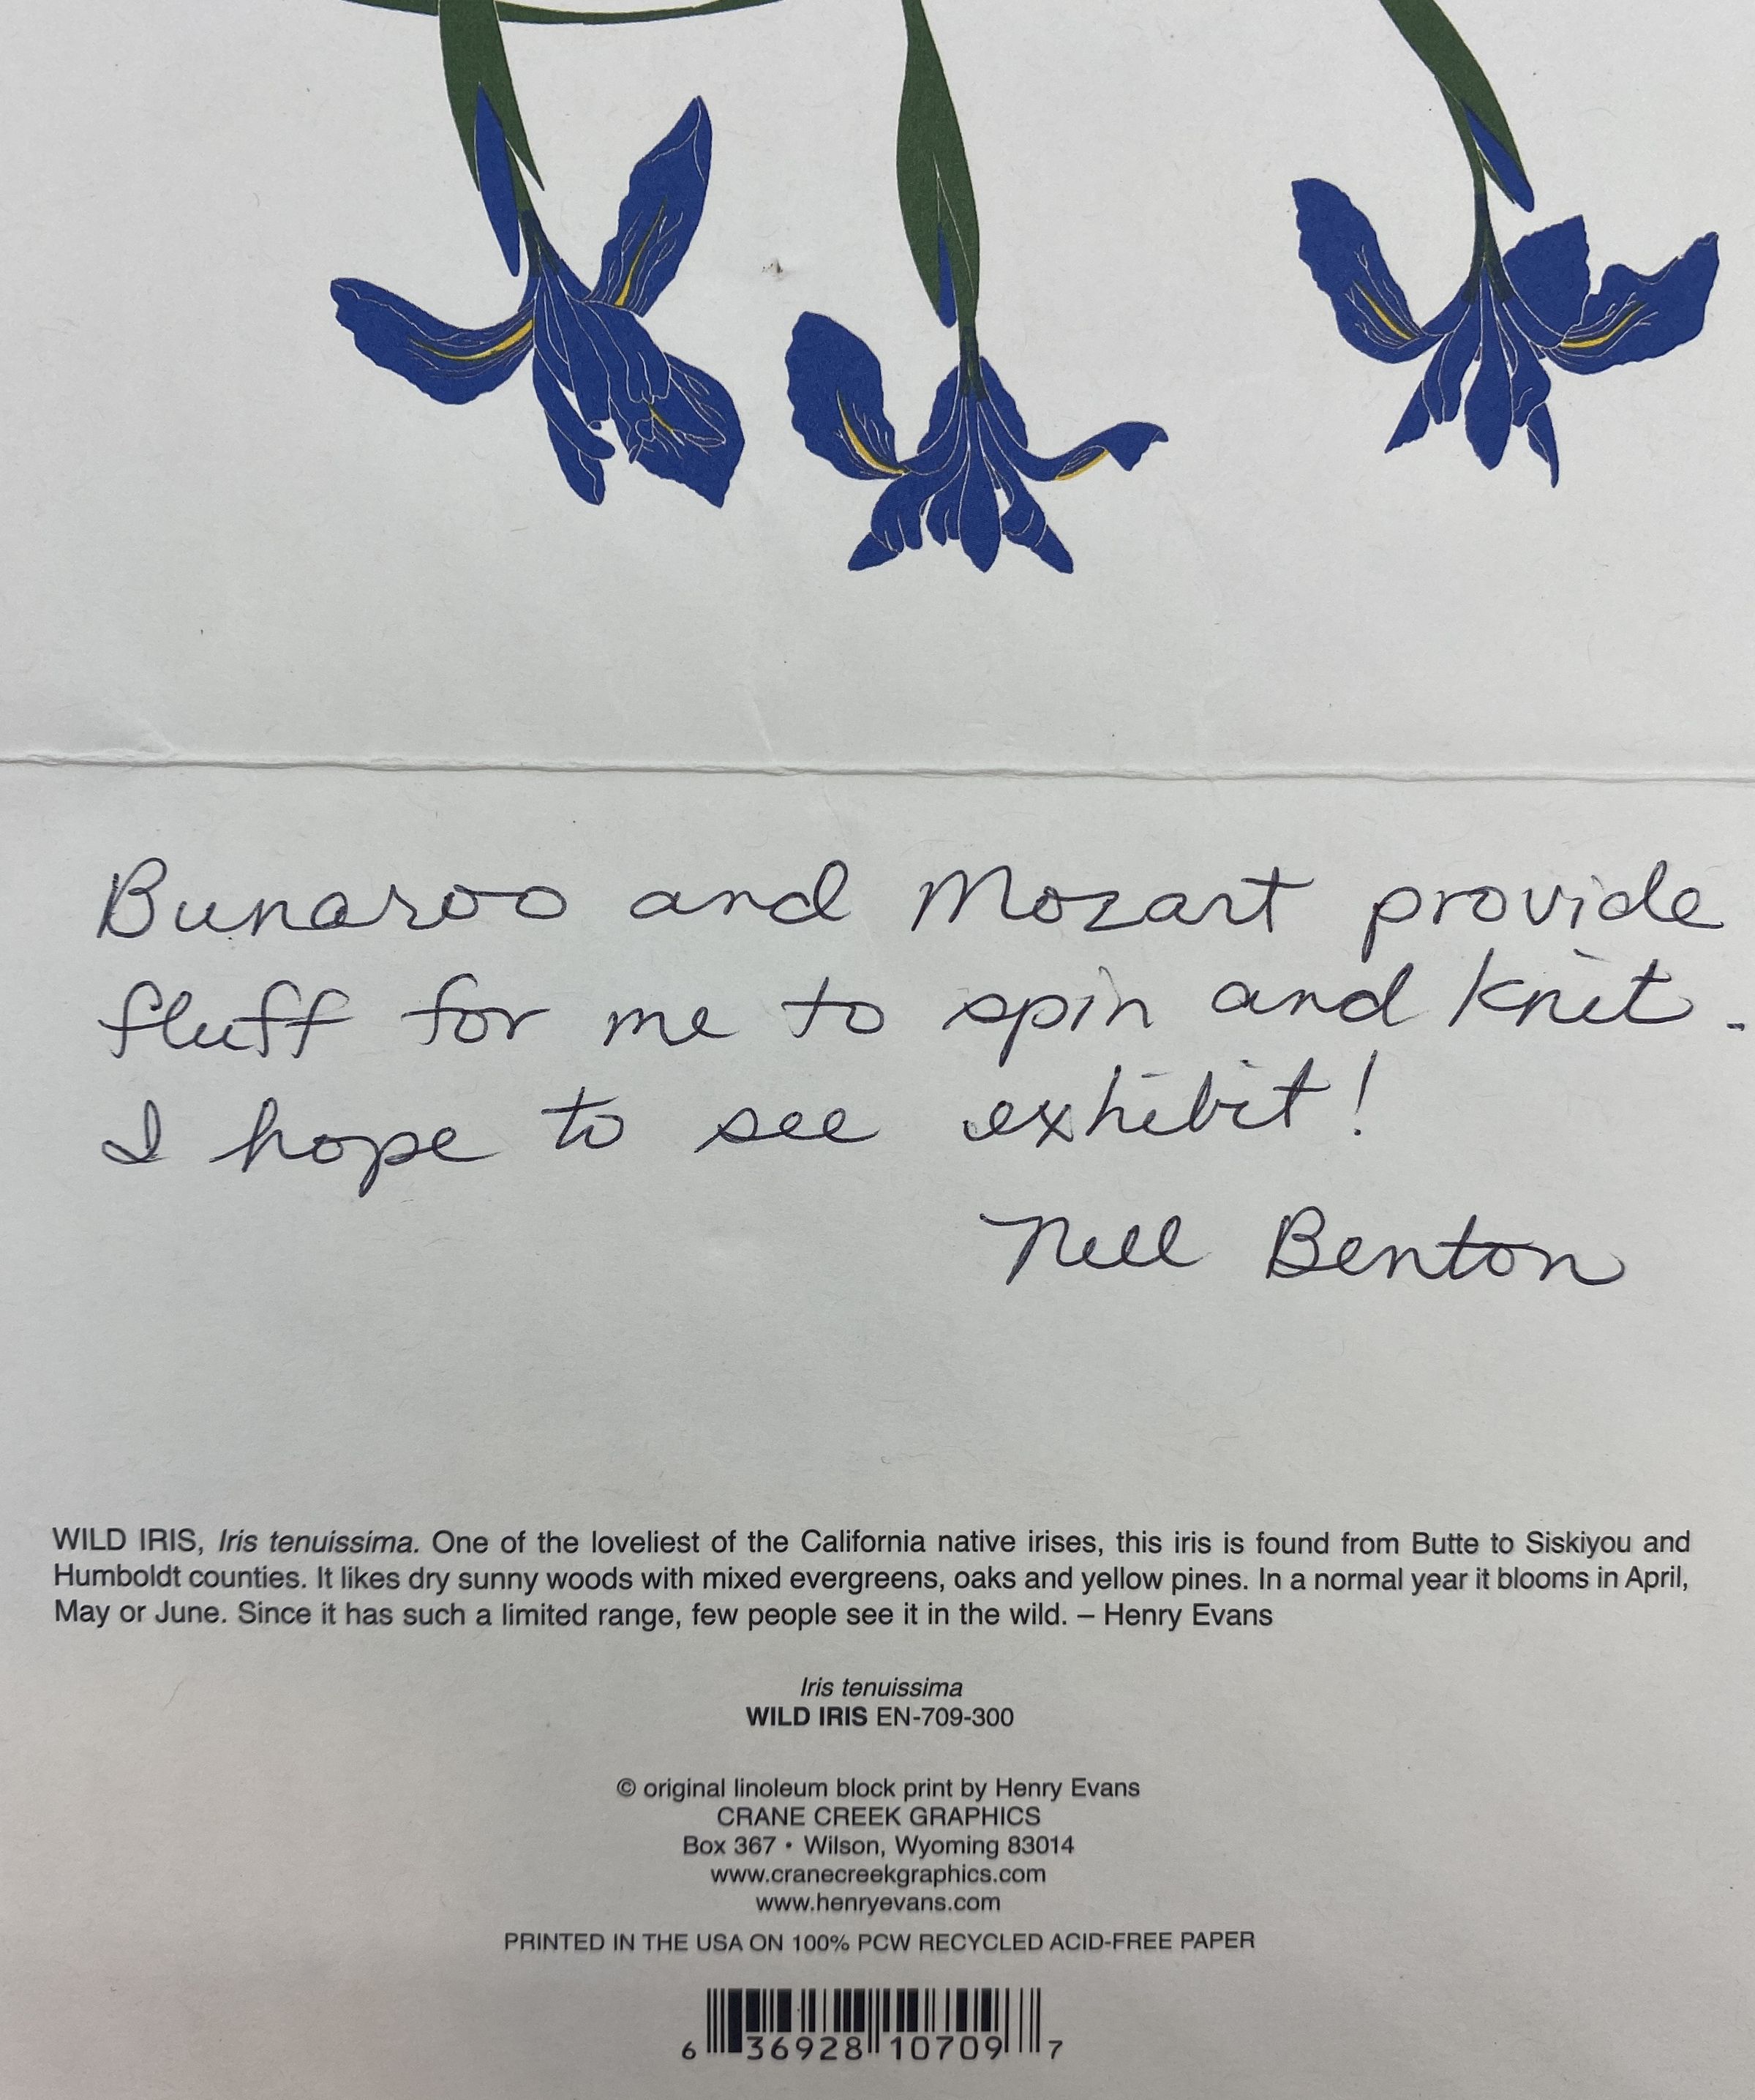 Bunaroo and Mozart provide
fluff for me to spin and knit.
I hope to see exhibit!
Nell Benton
WILD IRIS, Iris tenuissima. One of the loveliest of the California native irises, this iris is found from Butte to Siskiyou and
Humboldt counties. It likes dry sunny woods with mixed evergreens, oaks and yellow pines. In a normal year it blooms in April,
May or June. Since it has such a limited range, few people see it in the wild. – Henry Evans
Iris tenuissima
WILD IRIS EN-709-300
© original linoleum block print by Henry Evans
CRANE CREEK GRAPHICS
Box 367 • Wilson, Wyoming 83014
www.cranecreekgraphics.com
www.henryevans.com
PRINTED IN THE USA ON 100% PCW RECYCLED ACID-FREE PAPER
6 36928 10709 7